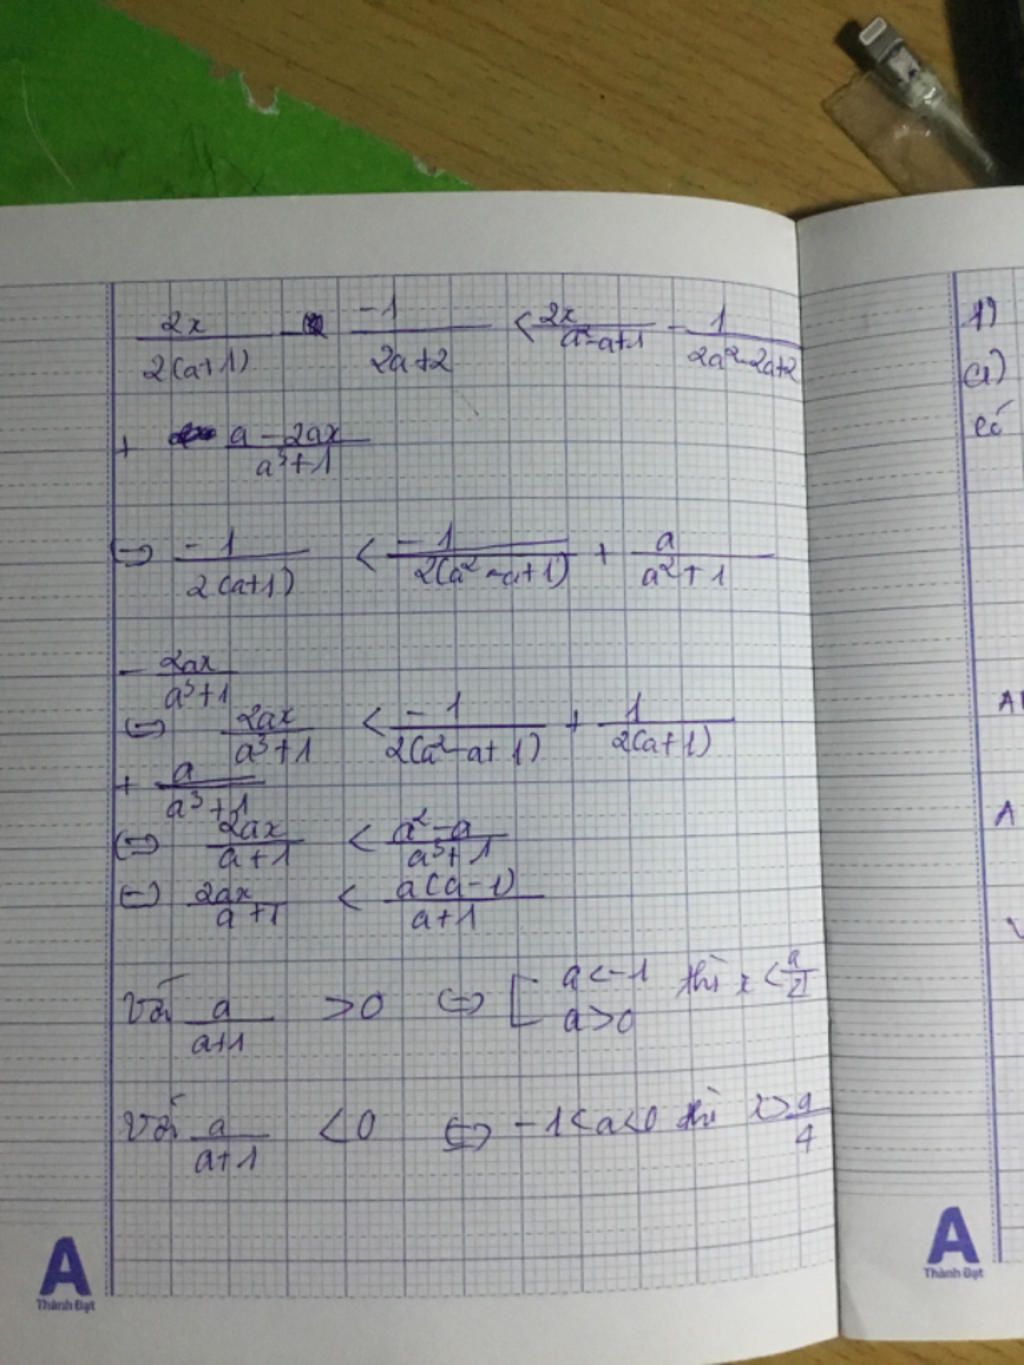 2x/2(a+1) - -1/2a+2 < 2x/a²-a+1 - 1/2a²-2a+2
+ a-2ax/a³+1
⇔ -1/2(a+1) < -1/2(a²-a+1) + a/a²+1
- 2ax/a³+1
⇔ 2ax/a³+1 < -1/2(a²-a+1) + 1/2(a+1)
+ a/a³+1
⇔ 2ax/a+1 < a²-a/a³+1
⇔ 2ax/a+1 < a(a-1)/a+1
Với a/a+1 >0 ⇔ [ a<-1 thì x <
a>0
Với a/a+1 <0 ⇔ -1<a<0 thì x> a/4
A
Thành Đạt
A
Thành Đạt
1)
a)
có
A